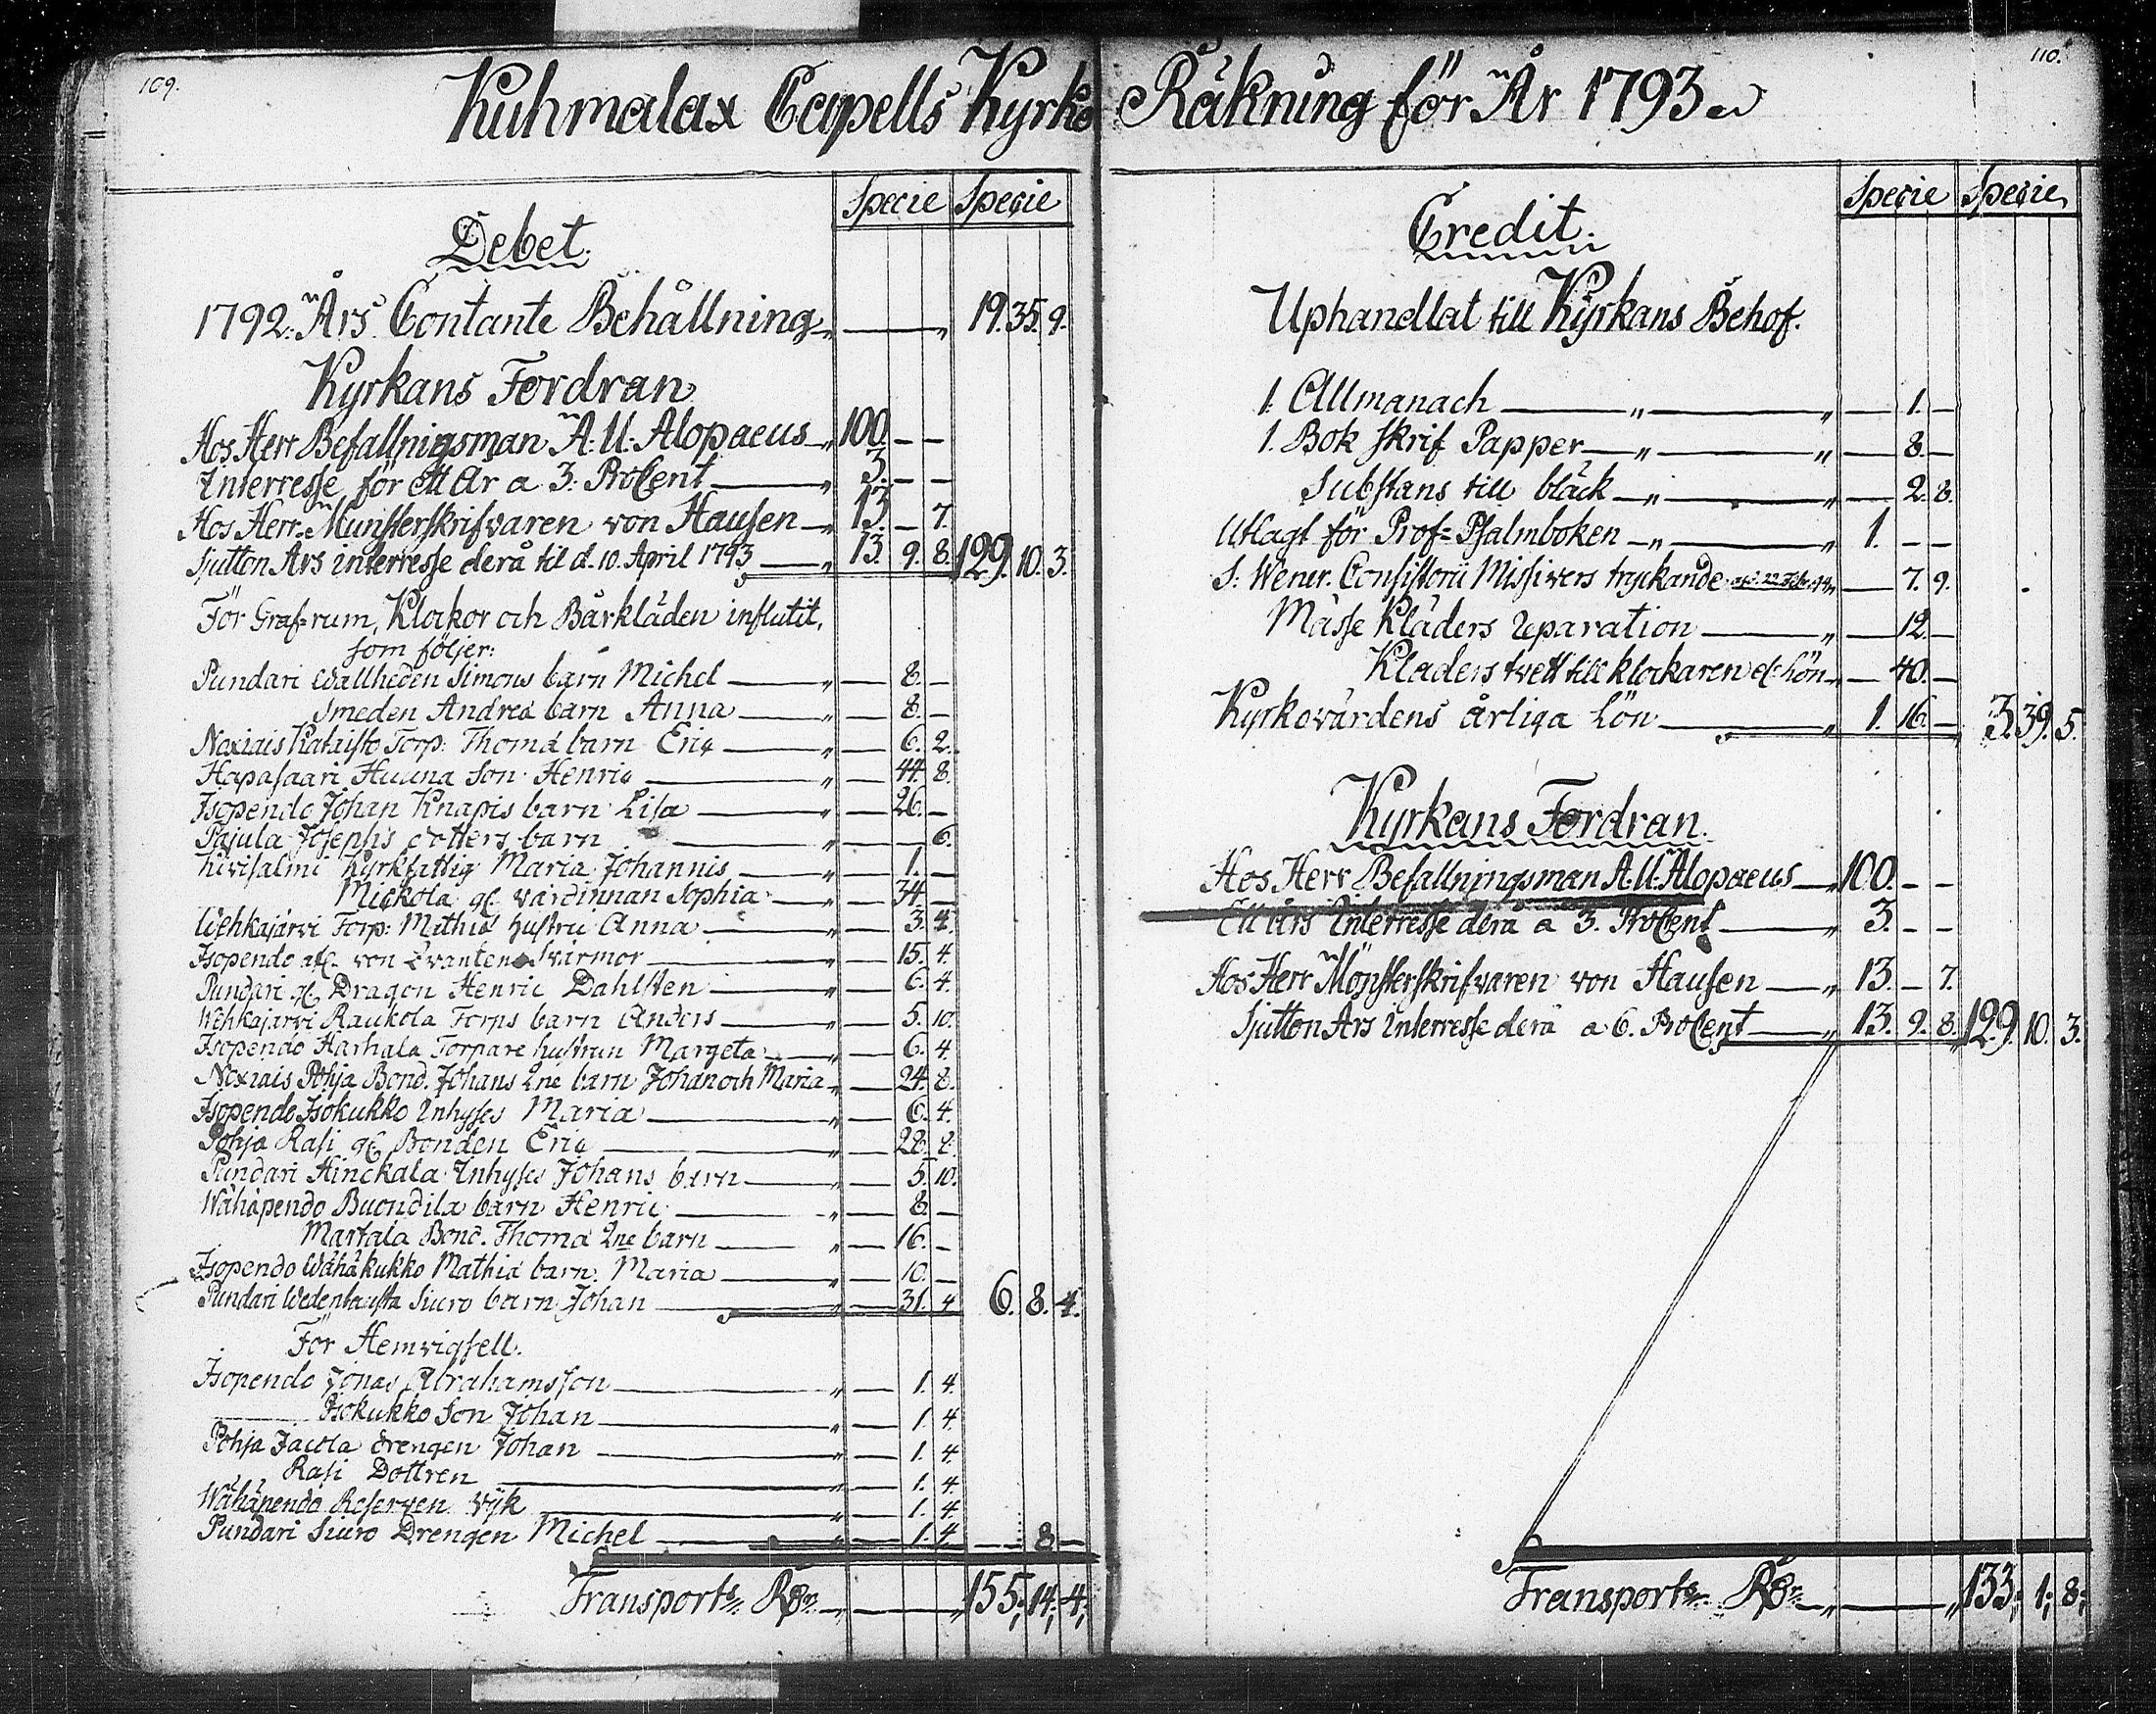 109.
Kuhmalax Capells Kyrko
Specie Specie
Debet.
1792. Års Contante Behållning 19. 35. 9.
Kyrkans Fordran
Hos Herr Befallningsman A. U. Alopaeus 100. — —
Interresse för ett år a 3. ProCent 3. — —
Hos Herr Munsterskrifvaren von Hausen 13. — 7.
Sjutton Års interresse derå til d. 10. April 1793 13. 9. 8. 129. 10. 3.
För Graf=rum, Klockor och Bårkläden influtit,
som följer:
Pundari Wallheden Simons barn Michel — 8. —
Smeden Andrea barn Anna — 8. —
Noxiais Torp: Thoma barn Eric — 6. 2.
Hapasaari Son Henric — 44. 8.
Isopendo Johan Knapis barn Lisa — 26. —
Pajula Josephs dotters barn — — 6.
Kivisalmi Kyrkfattig Maria Johannis — 1. —
Mickola gl. värdinnan Sophia — 34. —
Wehkajärvi Torp: Mathis hustru Anna — 3. 4.
Isopendo von Qvanten Svärmor — 15. 4.
Pundari gl. Dragon Henric Dahlsten — 6. 4.
Wehkajärvi Raukola Torps barn Anders — 5. 10.
Isopendo Harhala Torpare hustrun Margeta — 6. 4.
Noxiais Pohja Bond. Johans 2ne barn Johan och Maria — 24. 8.
Isopendo Isokukko Inhyses Maria — 6. 4.
Pohja Rasi gl. Bonden Eric — 28. 8.
Pundari Hinckala Inhyses Johans barn — 5. 10.
Wähäpendo Buondila barn Henric — 8. —
Martala Bond. Thoma 2ne barn — 16. —
Isopendo Wähäkukko Mathia barn Maria — 10. —
Pundari Wedentausta Siuro barn Johan — 31. 4. 6. 8. 4.
För Hemvigsell.
Isopendo Jonas Abrahamsson — 1. 4.
Isokukko Son Johan — 1. 4.
Pohja Jacola drengen Johan — 1. 4.
Rasi Dottren — 1. 4.
Wähäpendo Reserven Wijk — 1. 4.
Pundari Siuro Drengen Michel — 1. 4. — 8. —
Transport Rdr 155. 14. 4.
110.
Räkning för År 1793
Specie Specie
Credit.
Uphandlat till Kyrkans Behof.
1. Allmanach — 1. —
1. Bok skrif Papper — 8. —
Substans till bläck — 2. 8.
Utlagt för Prof=Psalmboken 1. — —
S: Wener. Consistorii Missivers tryckande — 7. 9.
Mässe Kläders reparation — 12. —
Kläders tvätt till klockaren lön — 40. —
Kyrkovärdens årliga Lön 1. 16. — 3. 39. 5.
Kyrkans Fordran.
Hos Herr Befallningsman A. U. Alopaeus 100. — —
Ett års Interresse derå a 3. ProCent 3. — —
Hos Herr Mönsterskrifvaren von Hausen 13. — 7.
Sjutton Års Interresse derå a 6. ProCent 13. 9. 8. 129. 10. 3.
Transport Rdr 133. 1. 8.